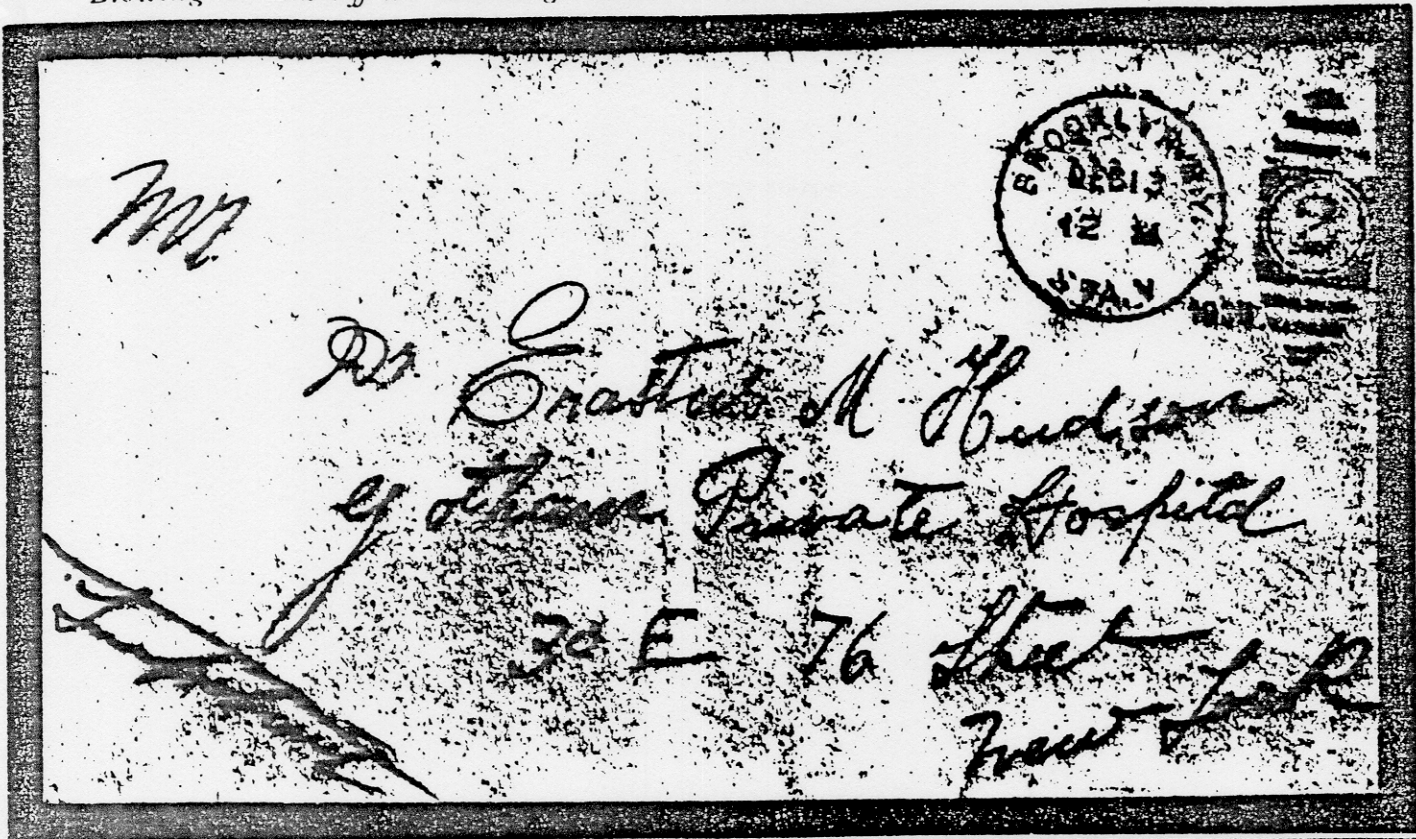 Mr.
BROOKLYN, N.Y.
DEC 13
12 M
STA. V
2
Dr. Erastus M Hudson
Gotham Private Hospital
30 E 76 Street
New York